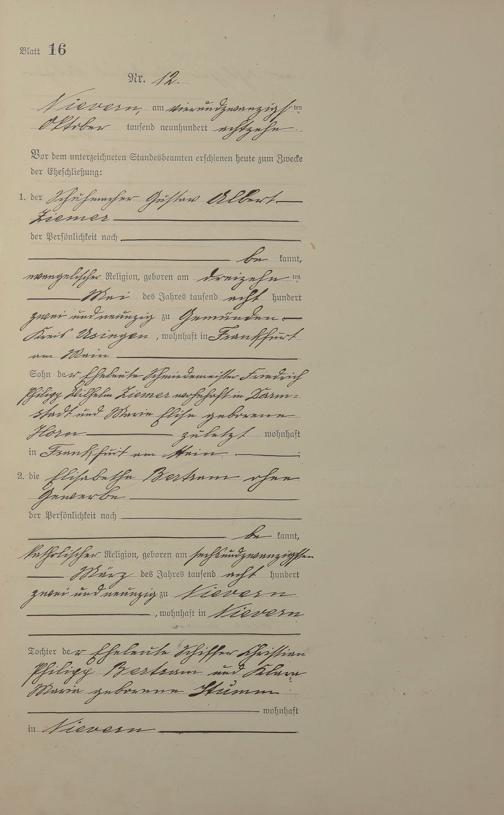 Blatt 16
Nr. 12.
Nievern, am vierundzwanzigsten
Oktober tausend neunhundert achtzehn
Vor dem unterzeichneten Standesbeamten erschienen heute zum Zwecke
der Eheschließung:
1. der Schuhmacher Gustav Albert
Ziemer
der Persönlichkeit nach
be kannt,
evangelischer Religion, geboren am dreizehn ten
Mai des Jahres tausend acht hundert
zwei und neunzig zu Gemünden
Kreis Usingen, wohnhaft in Frankfurt
am Main
Sohn der Eheleute Schmiedemeister Friedrich
Philipp Wilhelm Ziemer wohnhaft in Darm-
stadt und Marie Elise geborene
Horn zuletzt wohnhaft
in Frankfurt am Main
2. die Elisabetha Bertram ohne
Gewerbe
der Persönlichkeit nach
be kannt,
katholischer Religion, geboren am sechsundzwanzigsten
März des Jahres tausend acht hundert
zwei und neunzig zu Nievern
, wohnhaft in Nievern
Tochter der Eheleute Schiffer Christian
Philipp Bertram und Klara
Maria geborene Stumm
wohnhaft
in Nievern